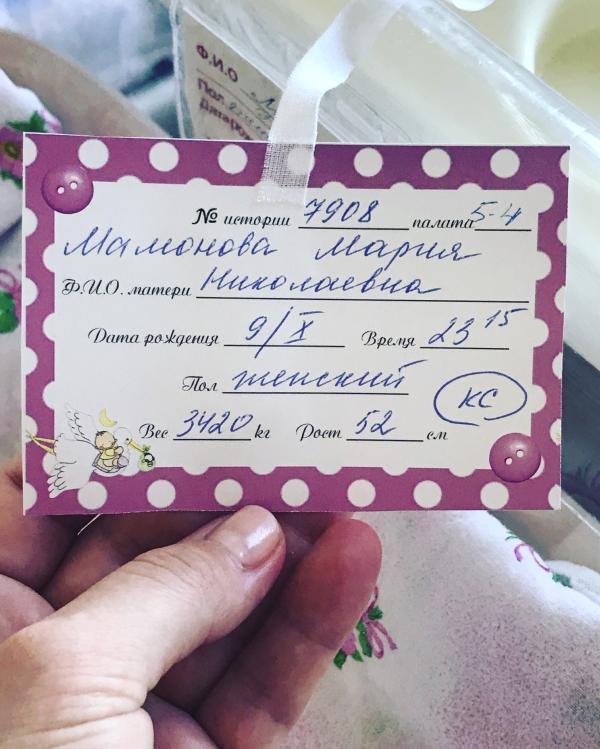 Ф.И.О
Пол
№ истории 7908 палата 5-4
Мамонова Мария
Ф.И.О. матери Николаевна
Дата рождения 9/X Время 23 15
Пол женский
КС
Вес 3420 kг Рост 52 см